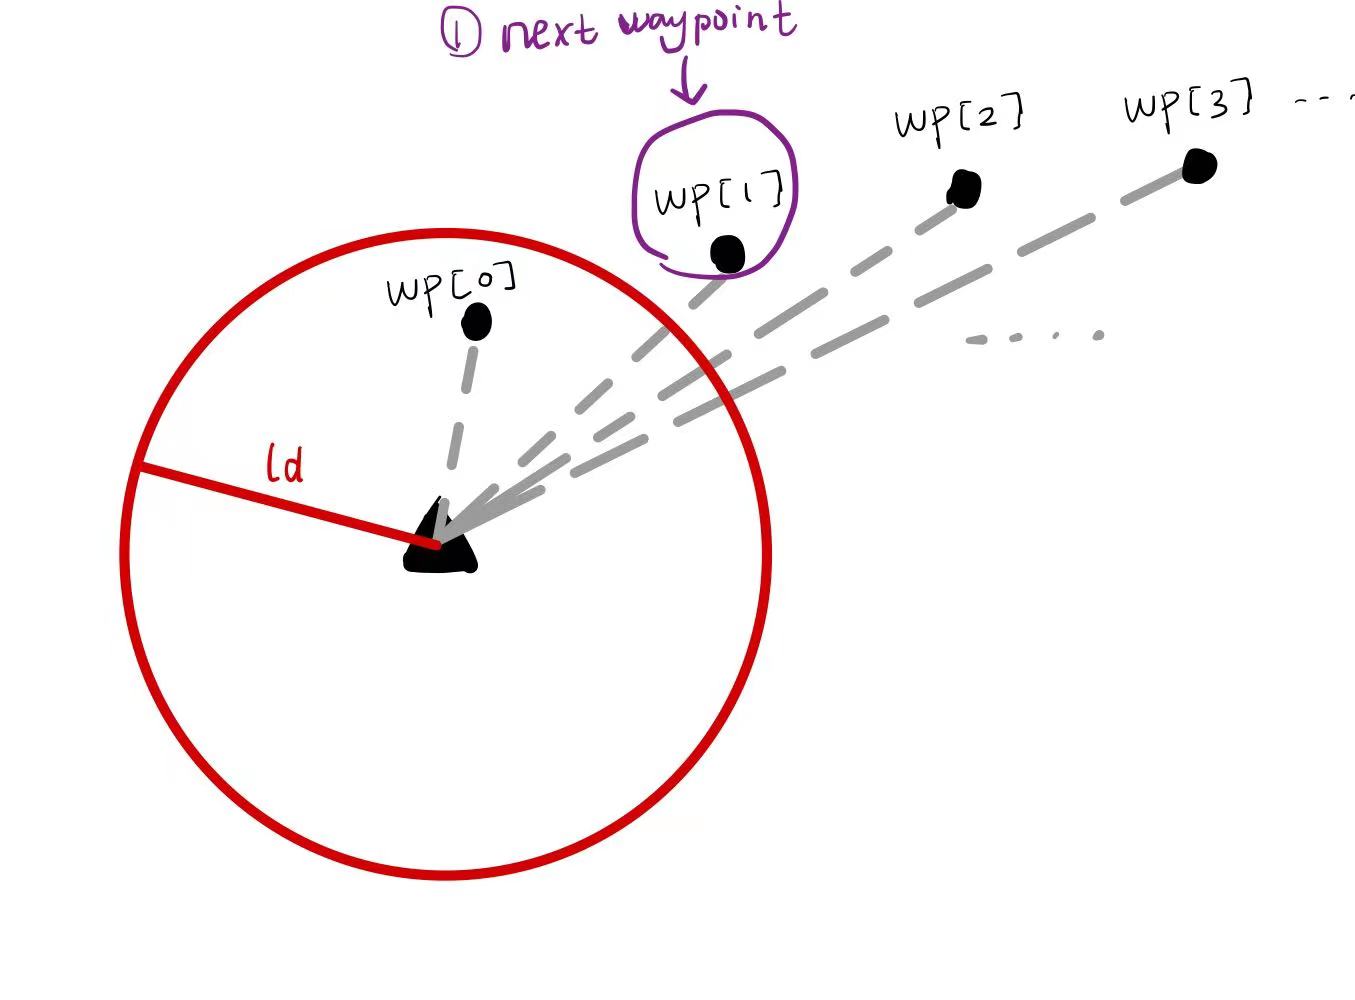 ① next waypoint
wp[2]
wp[3] ---
wp[1]
wp[0]
ld